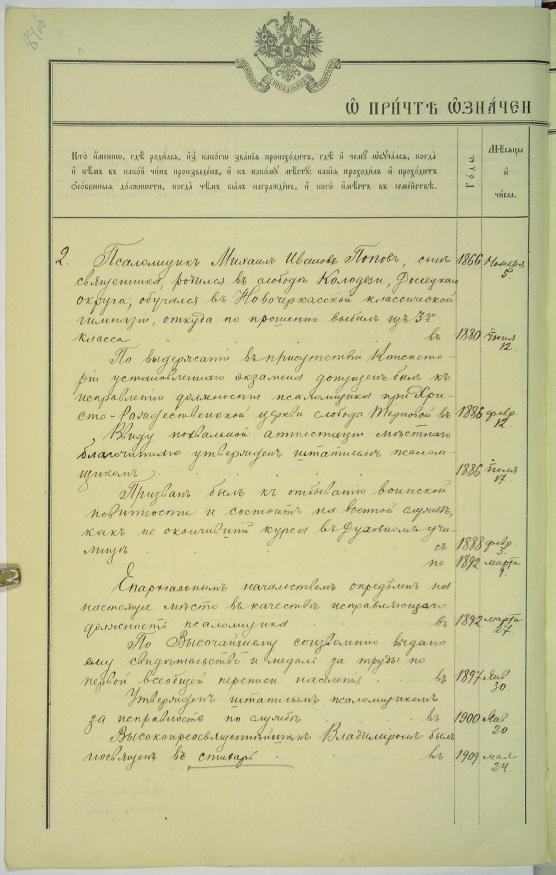 Ѡ ПРИ́ЧТѢ Ѡ҆ЗНА́ЧЕН
Кто̀ и҆́менно, гдѣ̀ роди́лся, и҆з̾ како́гѡ зва́нїѧ происхо́дитъ, гдѣ̀ и҆ чемꙋ̀ ѡ҆бꙋча́лся, когда̀
и҆ кѣ́мъ въ како́й чи́нъ произведе́нъ, и҆ къ како́мꙋ мѣ́стꙋ: каки̑ѧ проходи́лъ и҆ прохо́дитъ
ѻ҆со́бенныѧ до́лжности, когда̀ чѣ́мъ бы́лъ награжде́нъ, и҆ кого̀ и҆мѣ́етъ въ семе́йствѣ.
Го́ды.
Мѣ́сяцы
и҆
чи́сла.
2. Псаломщикъ Михаилъ Ивановъ Поповъ, сынъ 1866 Ноября
священника, родился въ слободѣ Колодези, Донецкаго 5.
округа, обучался въ Новочеркасской классической
гимназіи, откуда по прошенію выбылъ изъ 3го
класса въ 1880 Іюня
12.
По выдержаніи въ присутствіи Консисто-
ріи установленнаго экзамена допущенъ былъ къ
исправленію должности псаломщика при Хри-
сто-Рождественской церкви слобода Терновой въ 1885 февр.
12.
Ввиду похвальной аттестаціи мѣстнаго
благочиннаго утвержденъ штатнымъ псалом-
щикомъ 1886 Іюля
17.
Призванъ былъ къ отбыванію воинской
повинности и состоитъ на военной службѣ,
какъ не окончившій курса въ духовномъ учи-
лищѣ съ 1888 февр.
3.
по 1892 марта
9.
Епархіальнымъ начальствомъ опредѣленъ на
настоящее мѣсто въ качествѣ исправляющаго
должность псаломщика въ 1892 марта
27.
По Высочайшему соизволенію выдано
ему свидѣтельство и медаль за труды по
первой всеобщей переписи населенія въ 1897 Янв.
30.
Утвержденъ штатнымъ псаломщикомъ
за исправность по службѣ въ 1900 Янв.
20
Высокопреосвященнѣйшимъ Владимиромъ былъ
посвященъ въ стихарь въ 1909 мая
24.